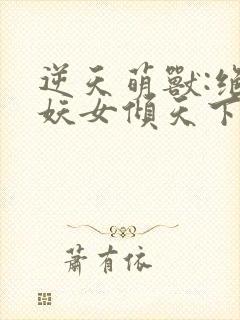 逆天萌獸:絕
妖女傾天下
蕭有依